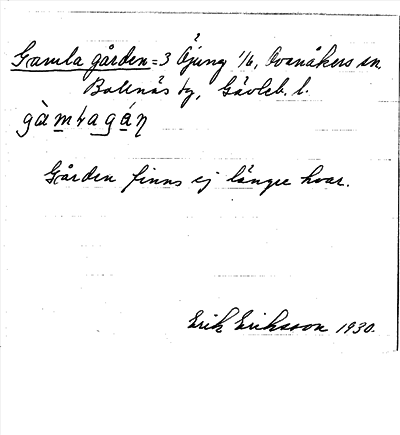 Gamla gården = 3 Öjung 1/6, Ovanåkers sn,
Bollnäs tg, Gävleb. l.
gàmɫagáṇ
Gården finns ej längre kvar.
Erik Eriksson 1930.